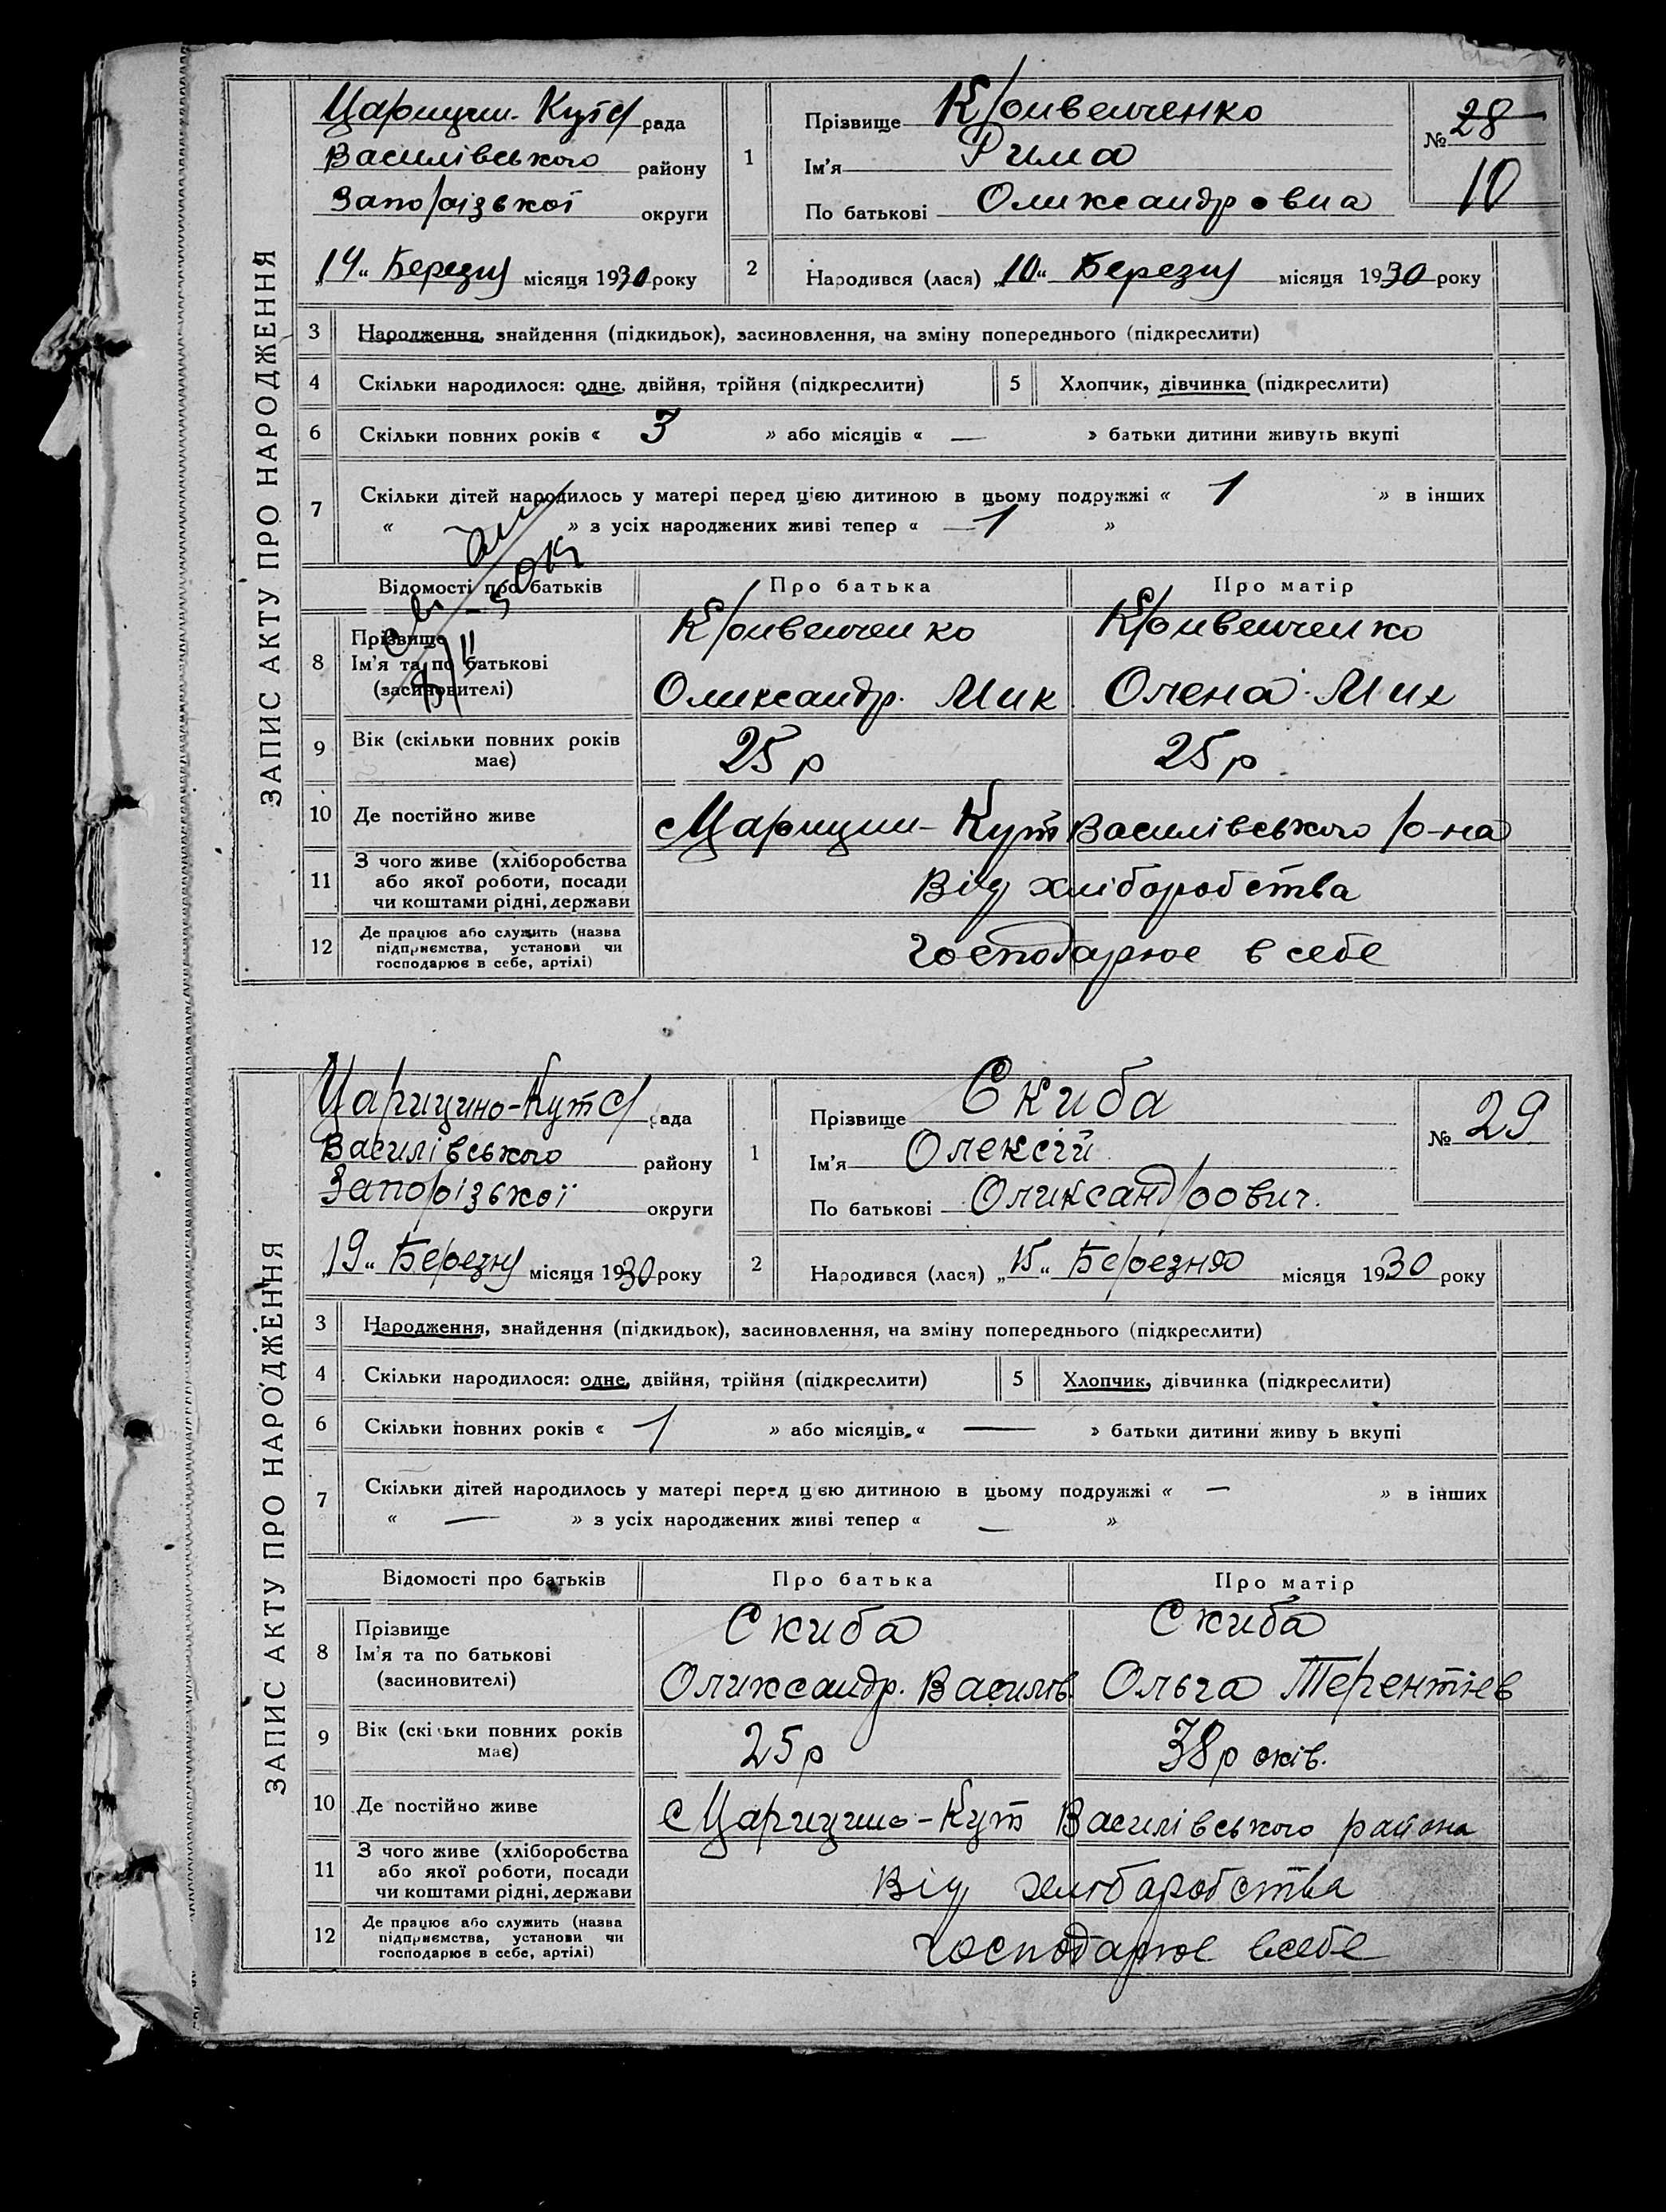 ЗАПИС АКТУ ПРО НАРОДЖЕННЯ
Царицин-Кутс рада
Василівського району
Запорізької округи
„14“ Березня місяця 1930 року
1 Прізвище Кривенченко
Ім'я Рима
По батькові Оликсандровна
№ 28
10
2 Народився (лася) „10“ Березня місяця 1930 року
3 Народження, знайдення (підкидьок), засиновлення, на зміну попереднього (підкреслити)
4 Скільки народилося: одне, двійня, трійня (підкреслити) 5 Хлопчик, дівчинка (підкреслити)
6 Скільки повних років « 3 » або місяців « — » батьки дитини живуть вкупі
7 Скільки дітей народилось у матері перед цією дитиною в цьому подружжі « 1 » в інших
« » з усіх народжених живі тепер « —1 »
Відомості про батьків Про батька Про матір
8 Прізвище Кривенченко Кривенченко
Ім'я та по батькові
(засиновителі) Оликсандр. Мик Олена Мих
9 Вік (скільки повних років має) 25 р 25 р
10 Де постійно живе с Царицин-Кут Василівського р-на
11 З чого живе (хліборобства
або якої роботи, посади Від хліборобства
чи коштами рідні, держави
12 Де працює або служить (назва
підприємства, установи чи господарює в себе
господарює в себе, артілі)
ЗАПИС АКТУ ПРО НАРОДЖЕННЯ
Царицино-Кутс рада
Василівського району
Запорізької округи
„19“ Березня місяця 1930 року
1 Прізвище Скиба
Ім'я Олексій
По батькові Оликсандрович.
№ 29
2 Народився (лася) „15“ Березня місяця 1930 року
3 Народження, знайдення (підкидьок), засиновлення, на зміну попереднього (підкреслити)
4 Скільки народилося: одне, двійня, трійня (підкреслити) 5 Хлопчик, дівчинка (підкреслити)
6 Скільки повних років « 1 » або місяців « — » батьки дитини живу ь вкупі
7 Скільки дітей народилось у матері перед цією дитиною в цьому подружжі « — » в інших
« — » з усіх народжених живі тепер « — »
Відомості про батьків Про батька Про матір
8 Прізвище Скиба Скиба
Ім'я та по батькові
(засиновителі) Оликсандр. Василів. Ольга Терентіев
9 Вік (скільки повних років має) 25 р 38 років.
10 Де постійно живе с Царицино-Кут Василівського района
11 З чого живе (хліборобства
або якої роботи, посади Від хлібаробства
чи коштами рідні, держави
12 Де працює або служить (назва
підприємства, установи чи господарює в себе
господарює в себе, артілі)